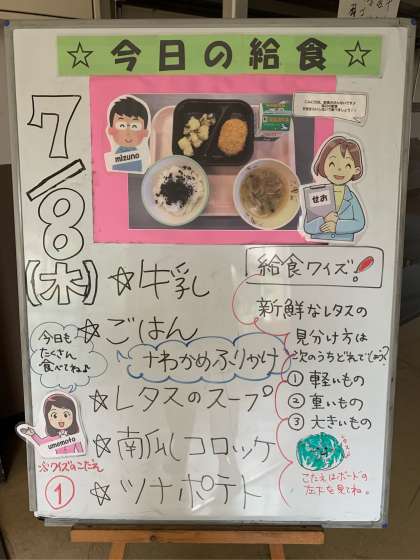 ☆今日の給食☆
7/8(木)
mizuno
せお
☆牛乳
☆ごはん
+わかめふりかけ
☆レタスのスープ
☆南瓜コロッケ
☆ツナポテト
今日も
たくさん
食べてね♪
umemoto
※クイズのこたえ
①
給食クイズ!
新鮮なレタスの
見分け方は
次のうちどれでしょう?
① 軽いもの
② 重いもの
③ 大きいもの
こたえはボードの
左下を見てね。